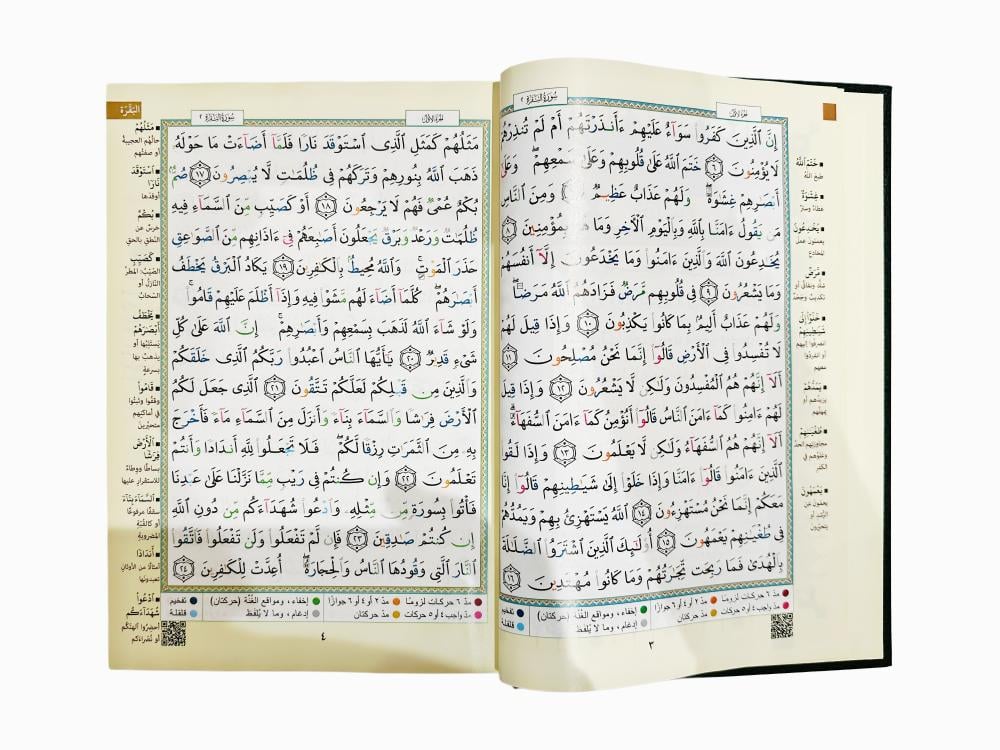 سُورَةُ البَقَرَةِ ٢
الجُزءُ الأوّل
إِنَّ ٱلَّذِينَ كَفَرُوا۟ سَوَآءٌ عَلَيْهِمْ ءَأَنذَرْتَهُمْ أَمْ لَمْ تُنذِرْهُمْ
لَا يُؤْمِنُونَ ٦ خَتَمَ ٱللَّهُ عَلَىٰ قُلُوبِهِمْ وَعَلَىٰ سَمْعِهِمْ ۖ وَعَلَىٰ
أَبْصَٰرِهِمْ غِشَٰوَةٌ ۖ وَلَهُمْ عَذَابٌ عَظِيمٌ ٧ وَمِنَ ٱلنَّاسِ
مَن يَقُولُ ءَامَنَّا بِٱللَّهِ وَبِٱلْيَوْمِ ٱلْءَاخِرِ وَمَا هُم بِمُؤْمِنِينَ ٨
يُخَٰدِعُونَ ٱللَّهَ وَٱلَّذِينَ ءَامَنُوا۟ وَمَا يَخْدَعُونَ إِلَّآ أَنفُسَهُمْ
وَمَا يَشْعُرُونَ ٩ فِى قُلُوبِهِم مَّرَضٌ فَزَادَهُمُ ٱللَّهُ مَرَضًا ۖ
وَلَهُمْ عَذَابٌ أَلِيمٌۢ بِمَا كَانُوا۟ يَكْذِبُونَ ١٠ وَإِذَا قِيلَ لَهُمْ
لَا تُفْسِدُوا۟ فِى ٱلْأَرْضِ قَالُوٓا۟ إِنَّمَا نَحْنُ مُصْلِحُونَ ١١
أَلَآ إِنَّهُمْ هُمُ ٱلْمُفْسِدُونَ وَلَٰكِن لَّا يَشْعُرُونَ ١٢ وَإِذَا قِيلَ
لَهُمْ ءَامِنُوا۟ كَمَآ ءَامَنَ ٱلنَّاسُ قَالُوٓا۟ أَنُؤْمِنُ كَمَآ ءَامَنَ ٱلسُّفَهَآءُ ۗ
أَلَآ إِنَّهُمْ هُمُ ٱلسُّفَهَآءُ وَلَٰكِن لَّا يَعْلَمُونَ ١٣ وَإِذَا لَقُوا۟
ٱلَّذِينَ ءَامَنُوا۟ قَالُوٓا۟ ءَامَنَّا وَإِذَا خَلَوْا۟ إِلَىٰ شَيَٰطِينِهِمْ قَالُوٓا۟ إِنَّا
مَعَكُمْ إِنَّمَا نَحْنُ مُسْتَهْزِءُونَ ١٤ ٱللَّهُ يَسْتَهْزِئُ بِهِمْ وَيَمُدُّهُمْ
فِى طُغْيَٰنِهِمْ يَعْمَهُونَ ١٥ أُو۟لَٰٓئِكَ ٱلَّذِينَ ٱشْتَرَوُا۟ ٱلضَّلَٰلَةَ
بِٱلْهُدَىٰ فَمَا رَبِحَت تِّجَٰرَتُهُمْ وَمَا كَانُوا۟ مُهْتَدِينَ ١٦
خَتَمَ اللهُ
طبعَ اللهُ
غِشَٰوَةٌ
غطاءٌ وسترٌ
يُخَٰدِعُونَ
يعملون عملَ
المُخادع
مَّرَضٌ
شكٌّ ونفاقٌ أو
تكذيبٌ وجحدٌ
خَلَوْا۟ إِلَىٰ
شَيَٰطِينِهِمْ
انصرفُوا إليهم
أو انفردُوا
معهم
يَمُدُّهُمْ
يزيدهم أو
يُمهلهم
طُغْيَٰنِهِمْ
مجاوزتهم الحدّ
وغلوّهم في
الكفر
يَعْمَهُونَ
يعمَون عن
الرُّشد أو
يتحيّرون
مدّ ٦ حركات لزومًا
مدّ ٢ أو ٤ أو ٦ جوازًا
إخفاء، ومواقع الغُنَّة (حركتان)
تفخيم
مدّ واجب ٤ أو ٥ حركات
مدّ حركتان
إدغام، وما لا يُلفظ
قلقلة
٣
البَقَرَة
سُورَةُ البَقَرَةِ ٢
الجُزءُ الأوّل
مَثَلُهُمْ كَمَثَلِ ٱلَّذِى ٱسْتَوْقَدَ نَارًا فَلَمَّآ أَضَآءَتْ مَا حَوْلَهُۥ
ذَهَبَ ٱللَّهُ بِنُورِهِمْ وَتَرَكَهُمْ فِى ظُلُمَٰتٍ لَّا يُبْصِرُونَ ١٧ صُمٌّۢ
بُكْمٌ عُمْىٌ فَهُمْ لَا يَرْجِعُونَ ١٨ أَوْ كَصَيِّبٍ مِّنَ ٱلسَّمَآءِ فِيهِ
ظُلُمَٰتٌ وَرَعْدٌ وَبَرْقٌ يَجْعَلُونَ أَصَٰبِعَهُمْ فِىٓ ءَاذَانِهِم مِّنَ ٱلصَّوَٰعِقِ
حَذَرَ ٱلْمَوْتِ ۚ وَٱللَّهُ مُحِيطٌۢ بِٱلْكَٰفِرِينَ ١٩ يَكَادُ ٱلْبَرْقُ يَخْطَفُ
أَبْصَٰرَهُمْ ۖ كُلَّمَآ أَضَآءَ لَهُم مَّشَوْا۟ فِيهِ وَإِذَآ أَظْلَمَ عَلَيْهِمْ قَامُوا۟ ۚ
وَلَوْ شَآءَ ٱللَّهُ لَذَهَبَ بِسَمْعِهِمْ وَأَبْصَٰرِهِمْ ۚ إِنَّ ٱللَّهَ عَلَىٰ كُلِّ
شَىْءٍ قَدِيرٌ ٢٠ يَٰٓأَيُّهَا ٱلنَّاسُ ٱعْبُدُوا۟ رَبَّكُمُ ٱلَّذِى خَلَقَكُمْ
وَٱلَّذِينَ مِن قَبْلِكُمْ لَعَلَّكُمْ تَتَّقُونَ ٢١ ٱلَّذِى جَعَلَ لَكُمُ
ٱلْأَرْضَ فِرَٰشًا وَٱلسَّمَآءَ بِنَآءً وَأَنزَلَ مِنَ ٱلسَّمَآءِ مَآءً فَأَخْرَجَ
بِهِۦ مِنَ ٱلثَّمَرَٰتِ رِزْقًا لَّكُمْ ۖ فَلَا تَجْعَلُوا۟ لِلَّهِ أَندَادًا وَأَنتُمْ
تَعْلَمُونَ ٢٢ وَإِن كُنتُمْ فِى رَيْبٍ مِّمَّا نَزَّلْنَا عَلَىٰ عَبْدِنَا
فَأْتُوا۟ بِسُورَةٍ مِّن مِّثْلِهِۦ وَٱدْعُوا۟ شُهَدَآءَكُم مِّن دُونِ ٱللَّهِ
إِن كُنتُمْ صَٰدِقِينَ ٢٣ فَإِن لَّمْ تَفْعَلُوا۟ وَلَن تَفْعَلُوا۟ فَٱتَّقُوا۟
ٱلنَّارَ ٱلَّتِى وَقُودُهَا ٱلنَّاسُ وَٱلْحِجَارَةُ ۖ أُعِدَّتْ لِلْكَٰفِرِينَ ٢٤
مَثَلُهُمْ
حالُهم العجيبةُ
أو صفتُهم
ٱسْتَوْقَدَ
نَارًا
أوقدَها
بُكْمٌ
خرسٌ عن
النّطق بالحق
كَصَيِّبٍ
الصّيّب: المطرُ
النّازلُ أو
السّحابُ
يَخْطَفُ
أَبْصَٰرَهُمْ
يَستلِبُها أو
يذهبُ بها
بسرعةٍ
قَامُوا۟
وقفُوا وثبتُوا
في أماكنِهم
متحيّرين
ٱلْأَرْضَ
فِرَٰشًا
بساطًا ووطاءً
للاستقرارِ عليها
ٱلسَّمَآءَ بِنَآءً
سقفًا مرفوعًا
أو كالقُبّة
المضروبة
أَندَادًا
أمثالًا من الأوثان
تعبدونها
ٱدْعُوا۟
شُهَدَآءَكُم
أحضِروا آلهتَكم
أو نُصَراءَكم
مدّ ٦ حركات لزومًا
مدّ ٢ أو ٤ أو ٦ جوازًا
إخفاء، ومواقع الغُنَّة (حركتان)
تفخيم
مدّ واجب ٤ أو ٥ حركات
مدّ حركتان
إدغام، وما لا يُلفظ
قلقلة
٤